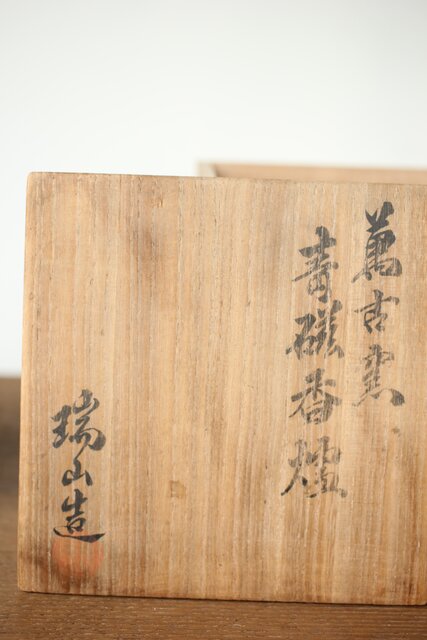 萬古窯
青磁香爐
瑞山造